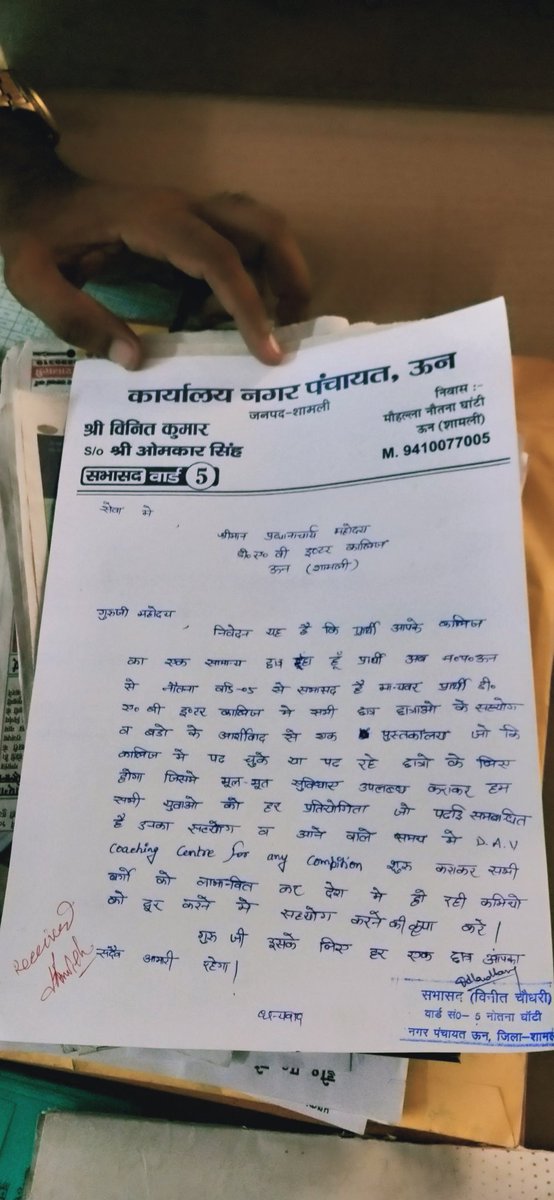 कार्यालय नगर पंचायत, ऊन
जनपद-शामली
श्री विनित कुमार
S/o श्री ओमकार सिंह
सभासद वार्ड 5
निवास :-
मौहल्ला नौतना घांटी
ऊन (शामली)
M. 9410077005
सेवा मे
श्रीमान प्रधानाचार्य महोदय
डी० ए० वी इण्टर कालिज
ऊन (शामली)
गुरुजी महोदय
निवेदन यह है कि प्रार्थी आपके कालिज
का एक सामान्य छात्र रहा हूँ प्रार्थी अब न०प०ऊन
से नौतना वार्ड-05 से सभासद है मान्यवर प्रार्थी डी०
ए० वी इण्टर कालिज मे सभी छात्र छात्राओ के सहयोग
व बडो के आर्शीवाद से एक पुस्तकालय जो कि
कालिज मे पढ चुके या पढ रहे छात्रो के लिए
होगा जिसमे मूल-भूत सुविधाए उपलब्ध कराकर हम
सभी युवाओ को हर प्रतियोगिता जो पढाई सम्बन्धित
है उनका सहयोग व आने वाले समय मे D.A.V
Coaching Centre for any Compbition शुरू कराकर सभी
वर्गो को लाभान्वित कर देश मे हो रही कमियो
को दूर करने मे सहयोग करने की कृपा करे|
गुरू जी इसके लिए हर एक छात्र आपका
सदैव आभारी रहेगा|
धन्यवाद
Received
सभासद (विनीत चौधरी)
वार्ड सं0- 5 नोतना घाँटी
नगर पंचायत ऊन, जिला-शामली